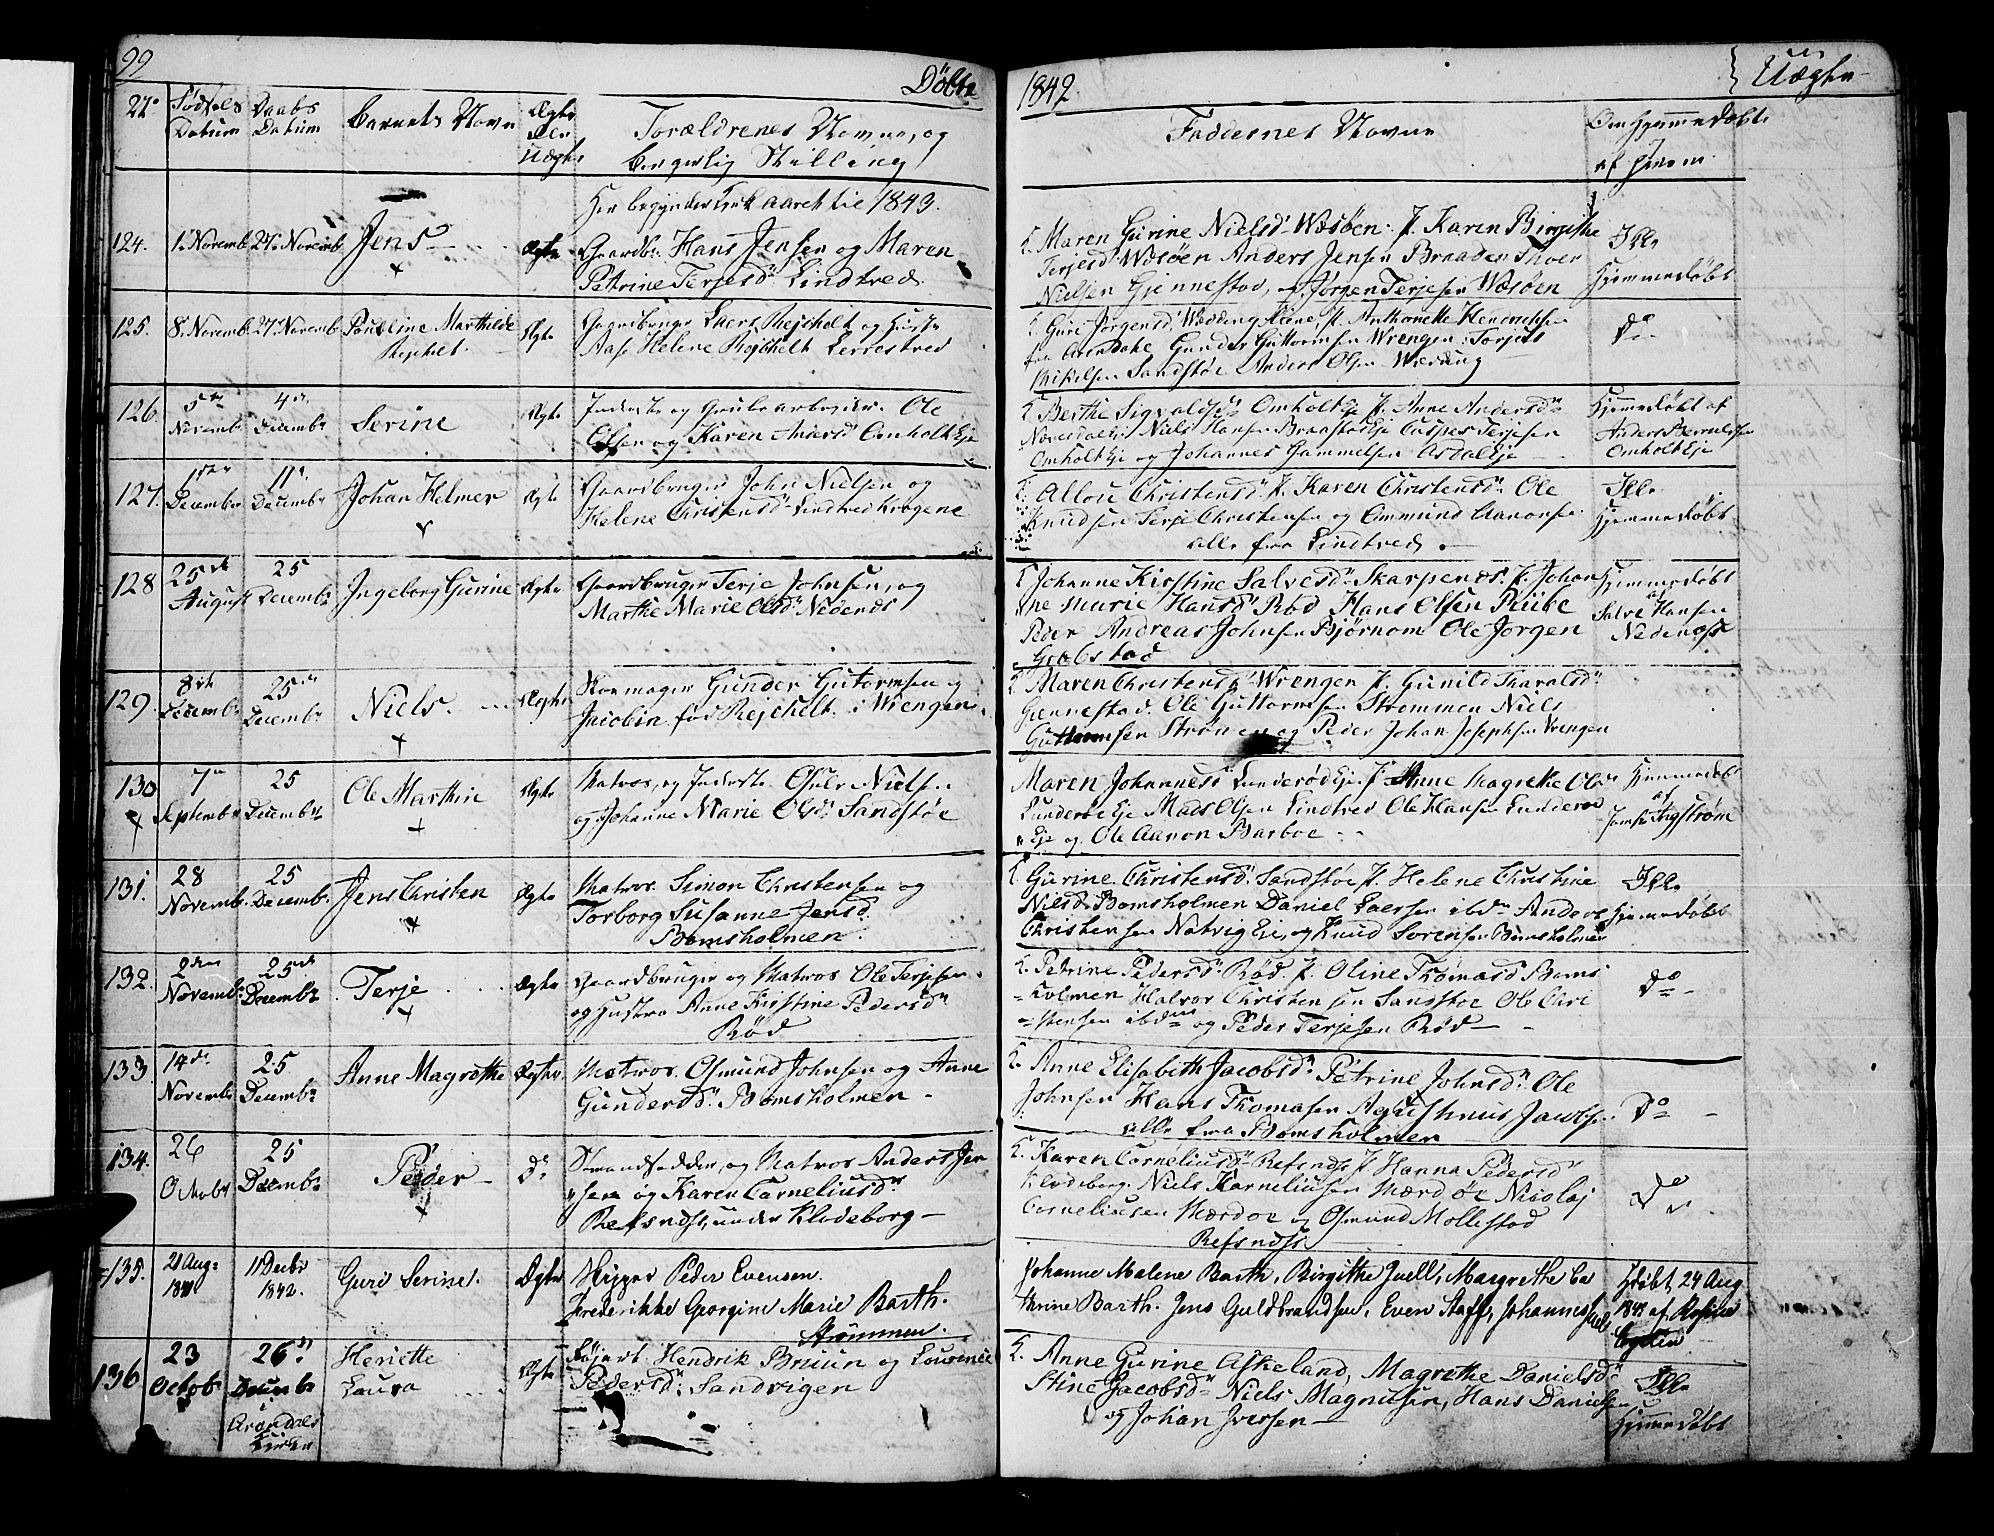 99
Døbte
1842
Uægte
No
Fødsels Datum
Daabs Datum
Barnets Navn
Ægte eller Uægte
Forældrenes Navne, og
borgerlig Stilling
Faddernes Navne
Om hjemmedøbt
af hvem
Her begynder Kirkeaaret til 1843.
124.
1. Novembr
27. Novembr
Jens
Ægte
Gaardbr. Hans Jensen og Maren
Petrine Terjesd. Lindtved
Maren Gurine Nielsd. Wæsøen. J. Karen Birgithe
Terjesd. Wæsøen Anders Jensen Braaden Thor
Nielsen Gjennestad, og Jørgen Terjesen Wæsøen
Ikke
Hjemmedøbt
125.
8. Novembr
27. Novembr
Pauline Marthilde
Ægte
Gaardbruger Laers Rejchelt og Hustr
Aase Helene Rejchelt Lerrestved
Gure Jørgensd. Wedding J. Anthonette Hendrichsen
fra Arendahl Gunder Guttormsen Wrengen Torjus
Mikelsen Sandstøe Anders Olsen Wæding
Do
126.
5te
Novembr
4de
Decembr
Serine
Ægte
Inderste og Grubearbejder. Ole
Olsen og Karen Andersd. Omholt Eje
Berthe Sigvaldsd. Omholt J. Anne Andersd.
Niels Hansen Braastad Eje Casper Terjesen
Omholt Eje og Johannes Gammelsen Asdal Eje
Hjemmedøbt af
Anders
Omholt Eje
127.
1ste
Decembr
11te
Decembr
Johan Helmer
Ægte
Gaardbruger John Nielsen og
Helene Christensd. Lindtved Krogene
Christensd. J. Karen Christensd. Ole
Knudsen Terje Christensen og Ommund Aanonsen
alle fra Lindtved.
Ikke
Hjemmedøbt
128
25de
August
25
Decembr
Ingeborg Gurine
Ægte
Gaardbruger Terje Johnsen, og
Marthe Marie Olsd. Nedenæs
Johanne Kirstine Salvesd. Skarpenæs. J. Johan
ne Marie Hansd. Rød Hans Olsen
Peder Andreas Johnsen Bjørnom Ole Jørgen
Grøbstad
Hjemmedøbt
af
Salve Hansen
Nedenæs
129.
8de
Decembr
25de
Decembr
Niels.
Ægte
Skomager Gunder Gutormsen og
Jacobin. fød Rejchelt. i Wrengen
Maren Christensd. Wrengen J. Gunild Tharalsd.
Gjennestad. Ole Guttormsen Strømmen Niels
Guttormsen Strømmen og Peder Johan Josephsen Vrengen
130
7de
Septembr
25
Decembr
Ole Marthin
Ægte
Matros, og Inderste. Osulv Nielsen
og Johanne Marie Olsd. Sandstøe
Maren Johannesd. Lunderød Eje. J. Anne Magrethe Ols
Lunderød Eje Mads Olsen Lindtved Ole Hansen Lunderød
Eje og Ole Aanon Barboe
Hjemmedøbt
af
Jomfr Angstrøm
131.
28
Novembr.
25
Decembr.
Jens Christen
Ægte
Matros. Simon Christensen og
Torborg Susanne Jensd.
Bomsholmen.
Gurine Christensd. Sandstøe J. Helene Christine
Nielsd. Bomsholmen Daniel Laersen ibd. Anders
Christensen Natvig Eie, og Knud Sørensen Bomsholmen
Ikke
Hjemmedøbt
132.
2den
Novembr
25de
Decembr
Terje
Ægte
Gaardbruger og Matros Ole Terjesen
og Hustro Anne Kirstine Pedersd.
Rød
Petrine Pedersd. Rød. J. Oline Thomasd Boms
holmen Halvor Christensen Sandstøe Ole Chri
stensen ibdm og Peder Terjesen Rød
Do
133.
14de
Novembr
25
Decembr
Anne Magrethe
Ægte
Matros. Osmund Johnsen og Anne
Gundersd. Bomsholmen
Anne Elisabeth Jacobsd. Petrine Johnsd. Ole
Johnsen Hans Thomasen Agusthinus Jacobsen
alle fra Bomsholmen
Do
134.
26
Octobr
25
Decembr
Peder
Do
Strandsidder, og Matros Anders Jen
sen og Karen Corneliusd.
Refsnæs, under Klodeborg
Karen Corneliusd. Refsnæs J. Hanna Pedersd.
Klodeborg. Niels Korneliusen Mærdøe Nicolaj
Corneliusen Mærdøe og Osmund Møllestad
Refsnæs
Do
135.
21 Aug.
11 Decbr
1842.
Guri Serine.
Ægte
Skipper Peder Evensen.
Frederikke Georgine Marie Barth.
Strømmen.
Johanne Malene Barth, Birgithe Juell, Margrethe Ca
thrine Barth. Jens Guldbrandsen, Even Staff, Johannes Juell
Hdøbt, 24 Aug
af
136
23
Octobr
26
Decembr
i
Arendals
Kirke
Heriette
Laura
Ægte
Hendrik Bruun og Lourence
Pedersd. Sandvigen
Anne Gurine Askeland, Magrethe Danielsd.
Stine Jacobsd. Niels Magnusen, Hans Danielsen
og Johan Iversen
Ikke
Hjemmedøbt